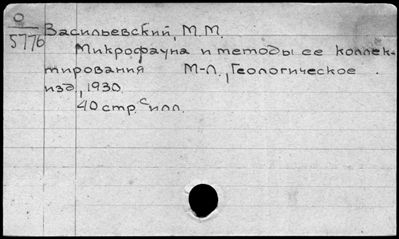 О
5776
Васильевский, М.М.
Микрофауна и методы ее коллек-
тирования М-Л., Геологическое
изд, 1930.
40 стр. с илл.